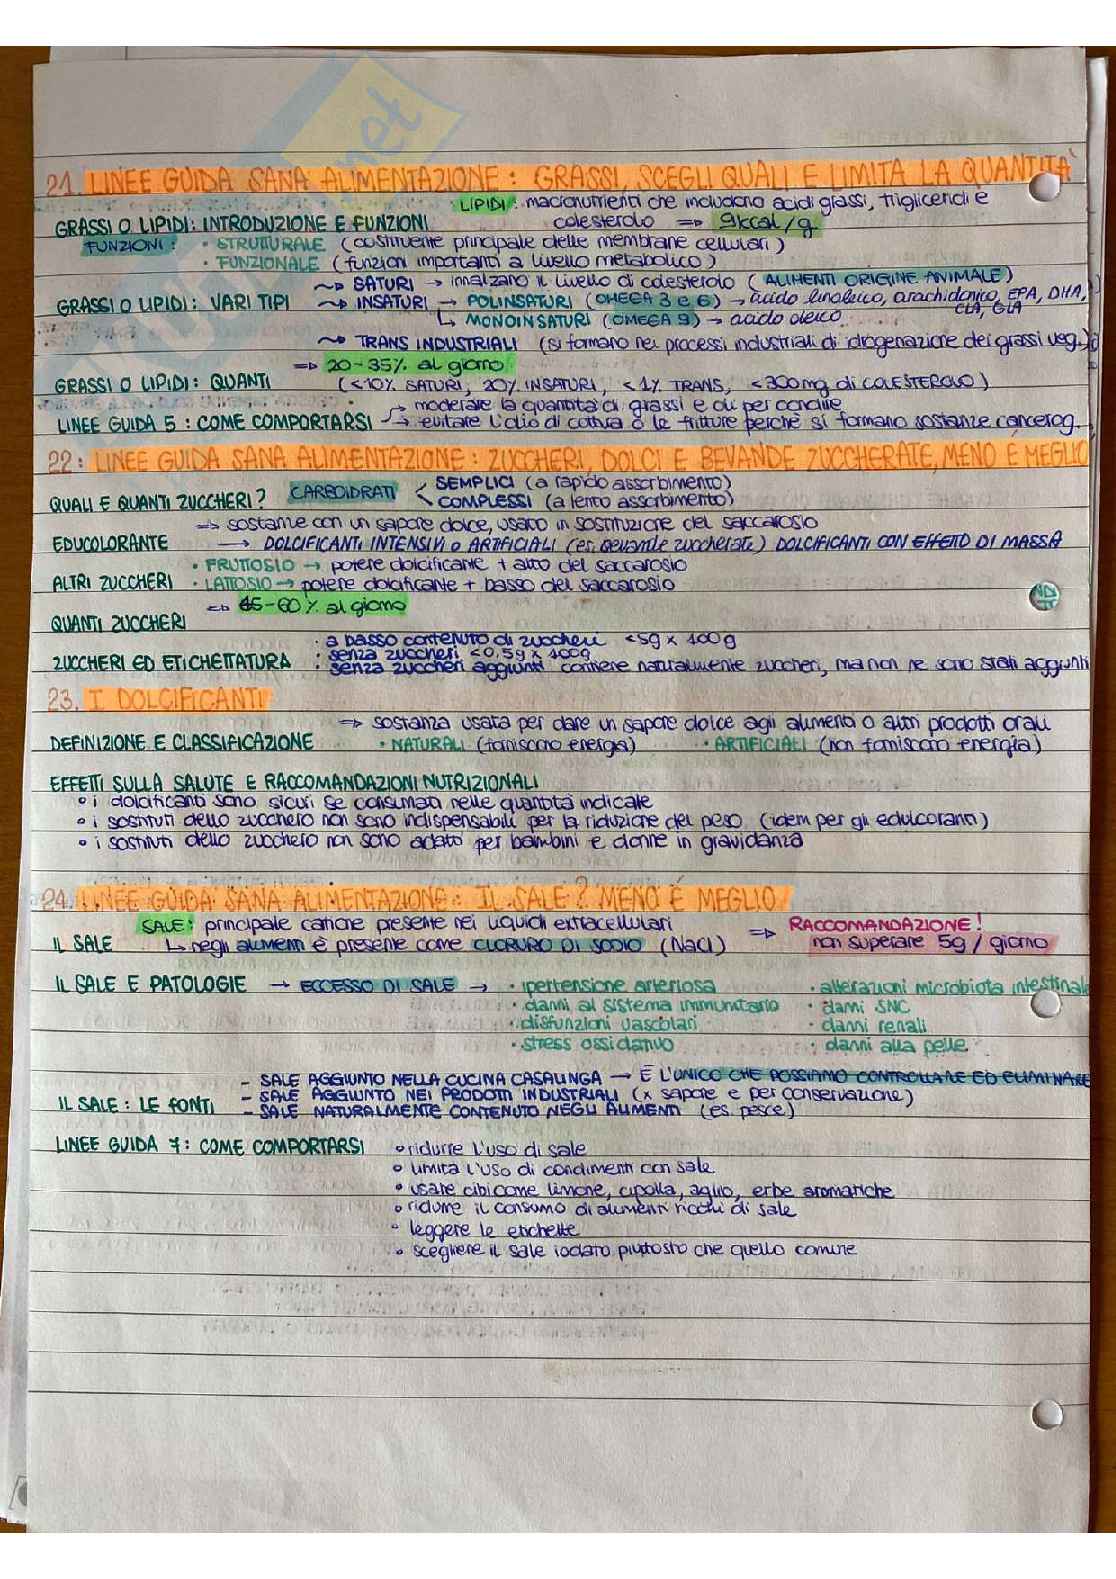 21. LINEE GUIDA SANA ALIMENTAZIONE: GRASSI, SCEGLI QUALI E LIMITA LA QUANTITA'
LIPIDI: macronutrienti che includono acidi grassi, trigliceridi e
GRASSI O LIPIDI: INTRODUZIONE E FUNZIONI colesterolo => 9kcal/g
FUNZIONI: • STRUTTURALE (costituente principale delle membrane cellulari)
• FUNZIONALE (funzioni importanti a livello metabolico)
~> SATURI → innalzano il livello di colesterolo (ALIMENTI ORIGINE ANIMALE)
GRASSI O LIPIDI: VARI TIPI ~> INSATURI → POLINSATURI (OMEGA 3 e 6) → acido linoleico, arachidonico, EPA, DHA,
CLA, GLA
↳ MONOINSATURI (OMEGA 9) → acido oleico
~> TRANS INDUSTRIALI (si formano nei processi industriali di idrogenazione dei grassi veg.)
=> 20-35% al giorno
GRASSI O LIPIDI: QUANTI (<10% SATURI, 20% INSATURI, <1% TRANS, <300mg di COLESTEROLO)
→ moderare la quantità di grassi e oli per condire
LINEE GUIDA 5: COME COMPORTARSI → evitare l'olio di cottura o le fritture perchè si formano sostanze cancerog.
22: LINEE GUIDA SANA ALIMENTAZIONE: ZUCCHERI, DOLCI E BEVANDE ZUCCHERATE, MENO È MEGLIO
SEMPLICI (a rapido assorbimento)
QUALI E QUANTI ZUCCHERI? CARBOIDRATI < COMPLESSI (a lento assorbimento)
=> sostanze con un sapore dolce, usato in sostituzione del saccarosio
EDUCOLORANTE → DOLCIFICANTI INTENSIVI o ARTIFICIALI (es. bevande zuccherate) DOLCIFICANTI CON EFFETTO DI MASSA
• FRUTTOSIO → potere dolcificante + alto del saccarosio
ALTRI ZUCCHERI • LATTOSIO → potere dolcificante + basso del saccarosio
=> 45-60% al giorno
QUANTI ZUCCHERI
• a basso contenuto di zuccheri <5g x 100g
• senza zuccheri <0,5g x 100g
ZUCCHERI ED ETICHETTATURA • senza zuccheri aggiunti contiene naturalmente zuccheri, ma non ne sono stati aggiunti
23. I DOLCIFICANTI
=> sostanza usata per dare un sapore dolce agli alimenti o altri prodotti orali
DEFINIZIONE E CLASSIFICAZIONE • NATURALI (forniscono energia) • ARTIFICIALI (non forniscono energia)
EFFETTI SULLA SALUTE E RACCOMANDAZIONI NUTRIZIONALI
• i dolcificanti sono sicuri se consumati nelle quantità indicate
• i sostituti dello zucchero non sono indispensabili per la riduzione del peso (idem per gli edulcoranti)
• i sostituti dello zucchero non sono adatto per bambini e donne in gravidanza
24. LINEE GUIDA SANA ALIMENTAZIONE: IL SALE? MENO È MEGLIO
SALE: principale catione presente nei liquidi extracellulari => RACCOMANDAZIONE!
IL SALE ↳ negli alimenti è presente come CLORURO DI SODIO (NaCl) non superare 5g / giorno
IL SALE E PATOLOGIE → ECCESSO DI SALE → • ipertensione arteriosa • alterazioni microbiota intestinale
• danni al sistema immunitario • danni SNC
• disfunzioni vascolari • danni renali
• stress ossidativo • danni alla pelle
- SALE AGGIUNTO NELLA CUCINA CASALINGA → È L'UNICO CHE POSSIAMO CONTROLLARE ED ELIMINARE
- SALE AGGIUNTO NEI PRODOTTI INDUSTRIALI (x sapore e per conservazione)
IL SALE: LE FONTI - SALE NATURALMENTE CONTENUTO NEGLI ALIMENTI (es. pesce)
LINEE GUIDA 7: COME COMPORTARSI • ridurre l'uso di sale
• limita l'uso di condimenti con sale
• usare cibi come limone, cipolla, aglio, erbe aromatiche
• ridurre il consumo di alimenti ricchi di sale
• leggere le etichette
• scegliere il sale iodato piuttosto che quello comune